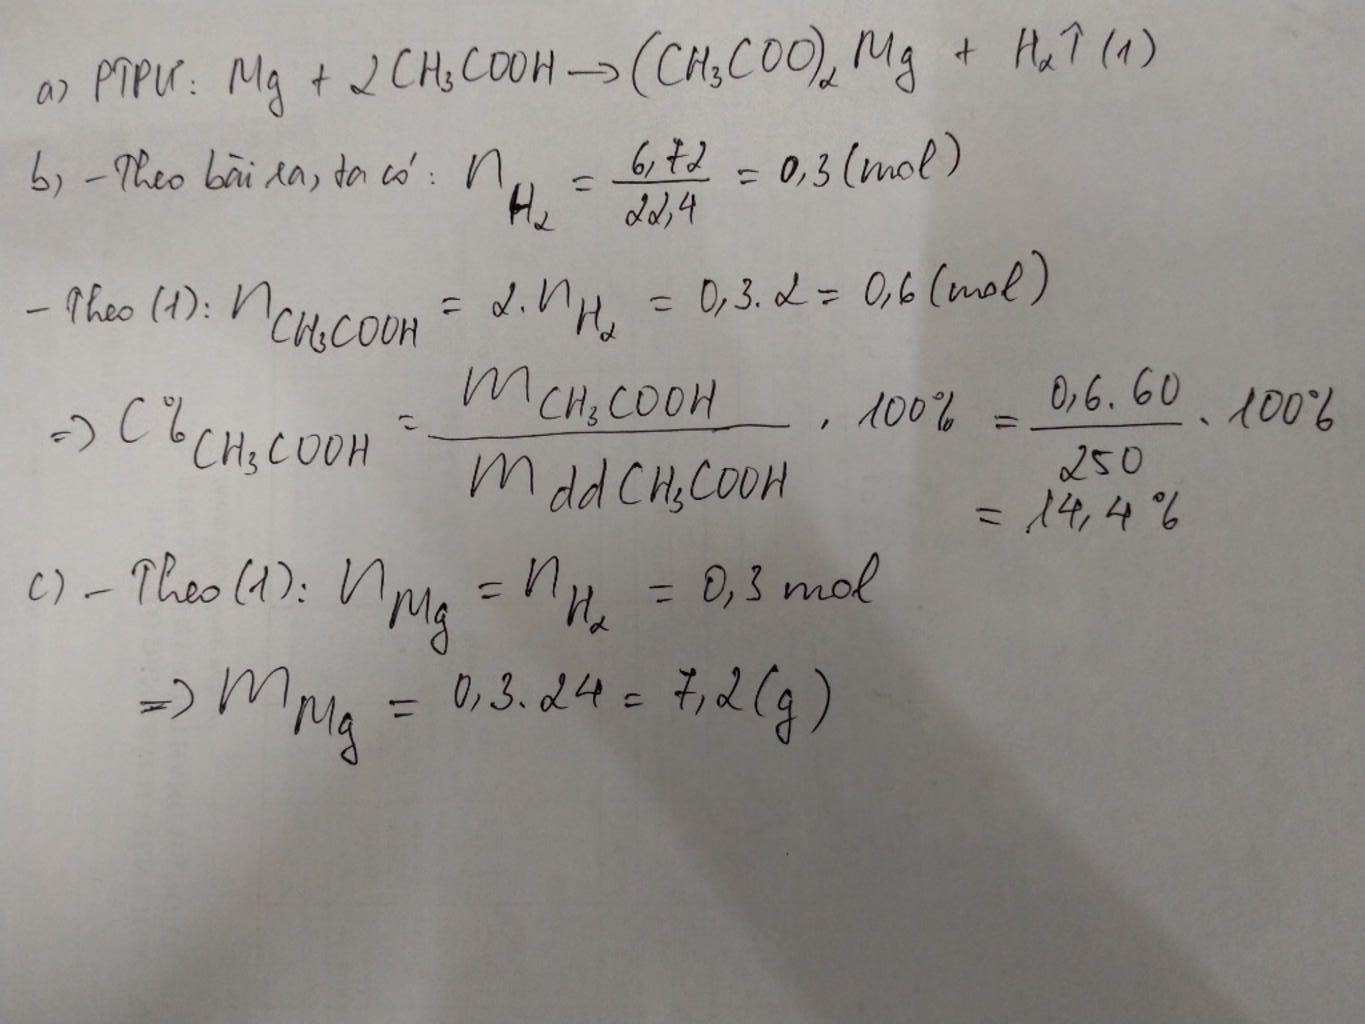 a) PTPƯ: Mg + 2CH₃COOH → (CH₃COO)₂Mg + H₂↑ (1)
b) - Theo bài ra, ta có: n_H₂ = 6,72/22,4 = 0,3 (mol)
- Theo (1): n_CH₃COOH = 2.n_H₂ = 0,3.2 = 0,6 (mol)
=> C%_CH₃COOH = m_CH₃COOH/m_ddCH₃COOH . 100% = 0,6.60/250 . 100%
= 14,4%
c) - Theo (1): n_Mg = n_H₂ = 0,3 mol
=> m_Mg = 0,3.24 = 7,2 (g)